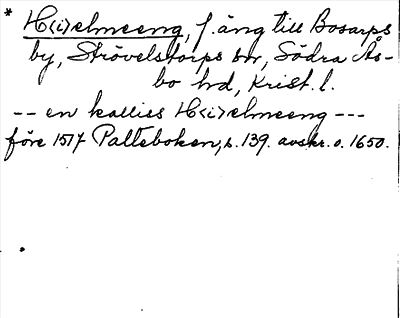 * H<i>elmeeng, f. äng till Bosarps
by, Strövelstorps sn, Södra Ås-
bo hd, Krist. l.
-- en kallies H<i>elmeeng ---
före 1517 Palteboken, s. 139. avskr. o. 1650.